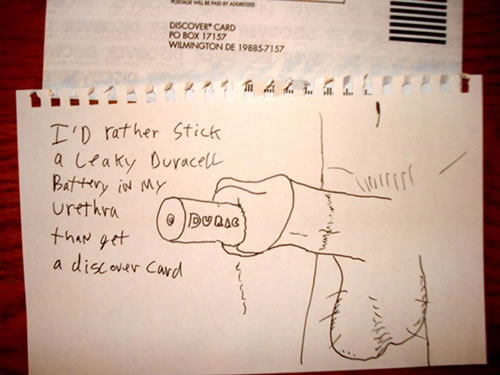 POSTAGE WILL BE PAID BY ADDRESSEE
DISCOVER® CARD
PO BOX 17157
WILMINGTON DE 19885-7157
I'D rather stick
a Leaky Duracell
Battery in my
urethra
than get
a discover card
DURAC